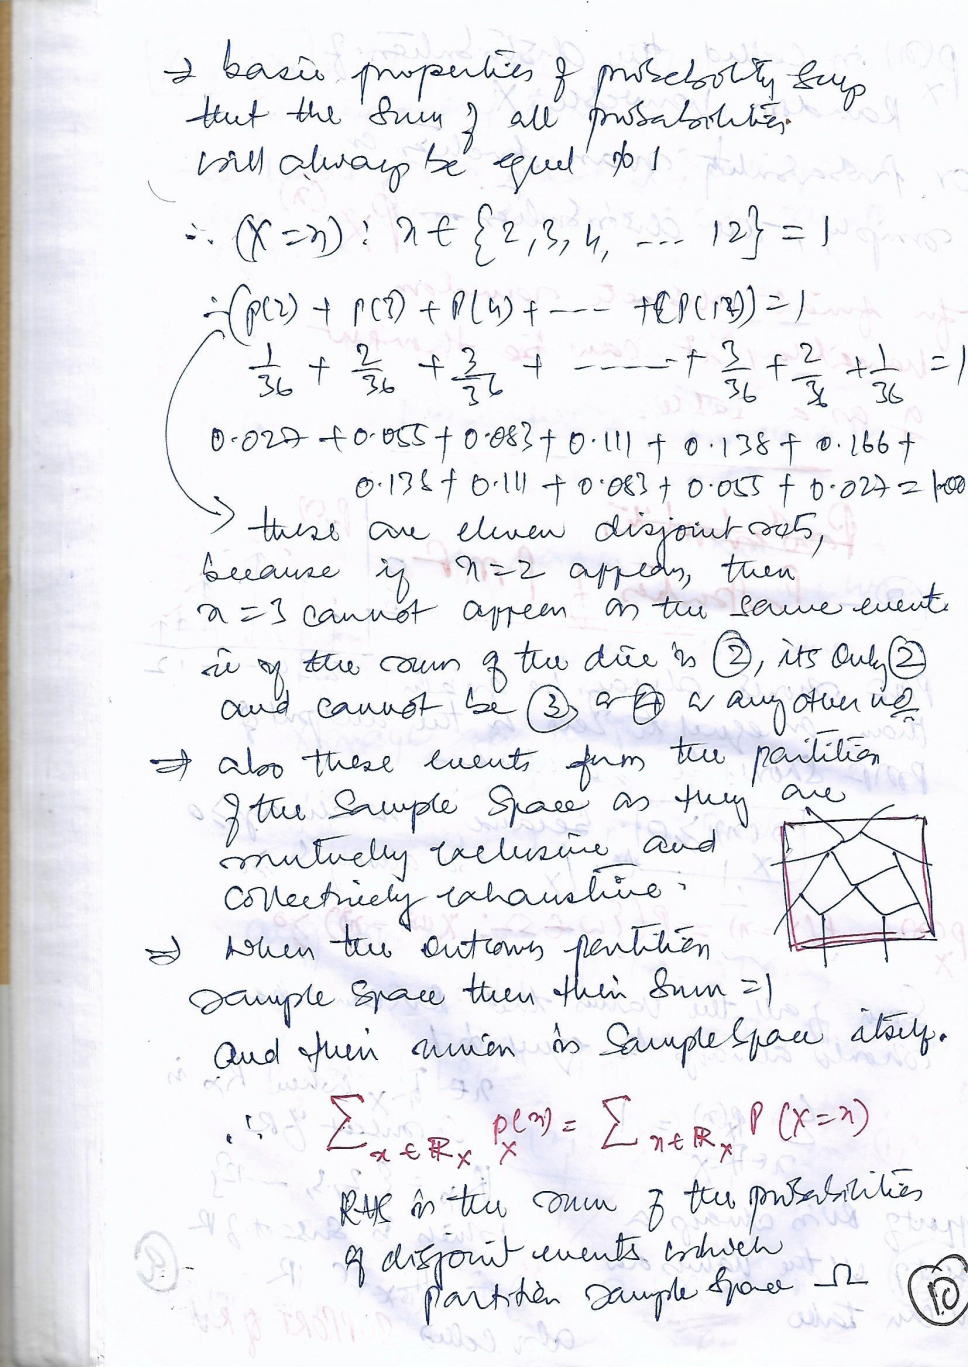 → basic properties of probability says
that the sum of all probabilities
will always be equal to 1
∴ (X = x) : x ∈ {2, 3, 4, ... 12} = 1
∴ (P(2) + P(3) + P(4) + --- + P(12)) = 1
1/36 + 2/36 + 3/36 + ------ + 3/36 + 2/36 + 1/36 = 1
0.027 + 0.055 + 0.083 + 0.111 + 0.138 + 0.166 +
0.138 + 0.111 + 0.083 + 0.055 + 0.027 = 1.00
→ these are eleven disjoint sets,
because if x = 2 appears, then
x = 3 cannot appear in the same event.
ie if the sum of the dice is ②, its only ②
and cannot be ③ or ④ or any other no
⇒ also these events form the partition
of the sample space as they are
mutually exclusive and
collectively exhaustive.
⇒ when the outcomes partition
sample space then their sum = 1
and their union is sample space itself.
∴ ∑ x ∈ R_X P_X(x) = ∑ x ∈ R_X P(X = x)
RHS is the sum of the probabilities
of disjoint events which
partition sample space Ω
10